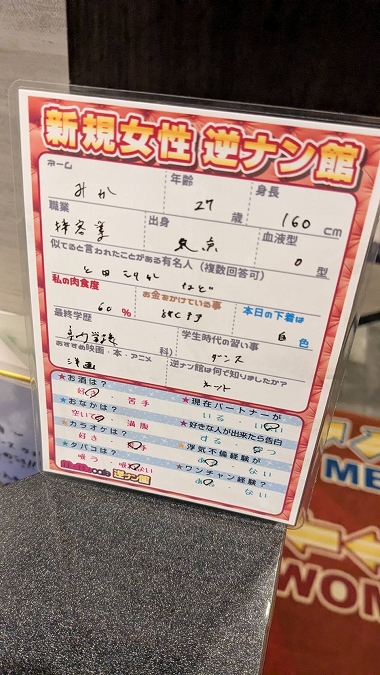 新規女性 逆ナン館
ネーム 年齢 身長
みか 27歳 160cm
職業 出身 血液型
接客業 東京 O型
似てると言われたことがある有名人（複数回答可）
など
私の肉食度 お金をかけている事 本日の下着は
60% 白色
最終学歴 学生時代の習い事
専門学校 ダンス
おすすめ映画・本・アニメ 逆ナン館は何で知りましたか？
漫画 ネット
★お酒は？ ★現在パートナーが
好き・苦手 いる・いない
★おなかは？ ★好きな人が出来たら告白
空いて・満腹 する・待つ
★カラオケは？ ★浮気不倫経験が
好き・苦手 ある・ない
★タバコは？ ★ワンチャン経験？
吸う・吸わない ある・ない
逆ナン館
ME
WOM